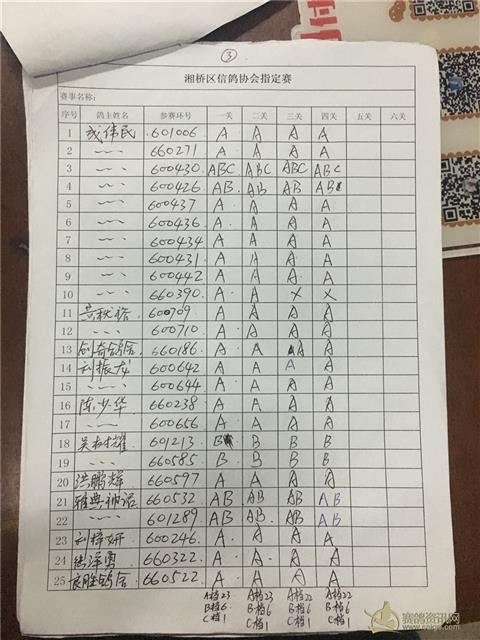 ③
湘桥区信鸽协会指定赛
赛事名称:
序号 鸽主姓名 参赛环号 一关 二关 三关 四关 五关 六关
1 伟民 601006 A A A A
2 〃 660271 A A A A
3 〃 600430 ABC ABC ABC ABC
4 〃 600426 AB AB AB AB
5 〃 600437 A A A A
6 〃 600436 A A A A
7 〃 600434 A A A A
8 〃 600431 A A A A
9 〃 600442 A A A A
10 〃 660390 A A X X
11 吴秋裕 600709 A A A A
12 〃 600710 A A A A
13 剑奇鸽舍 660186 A A A A
14 刘振龙 600642 A A A A
15 〃 600644 A A A A
16 陈少华 660238 A A A A
17 〃 600656 A A A A
18 吴树耀 601213 B B B B
19 〃 660585 B B B B
20 洪鹏辉 660597 A A A A
21 雅典神话 660532 AB AB AB AB
22 〃 601289 AB AB AB AB
23 刘梓妍 600246 A A A A
24 泽勇 660322 A A A A
25 胜鸽舍 660522 A A A A
A档23 A档23 A档22 A档22
B档6 B档6 B档6 B档6
C档1 C档1 C档1 C档1
赛鸽资讯网
www.saige.com